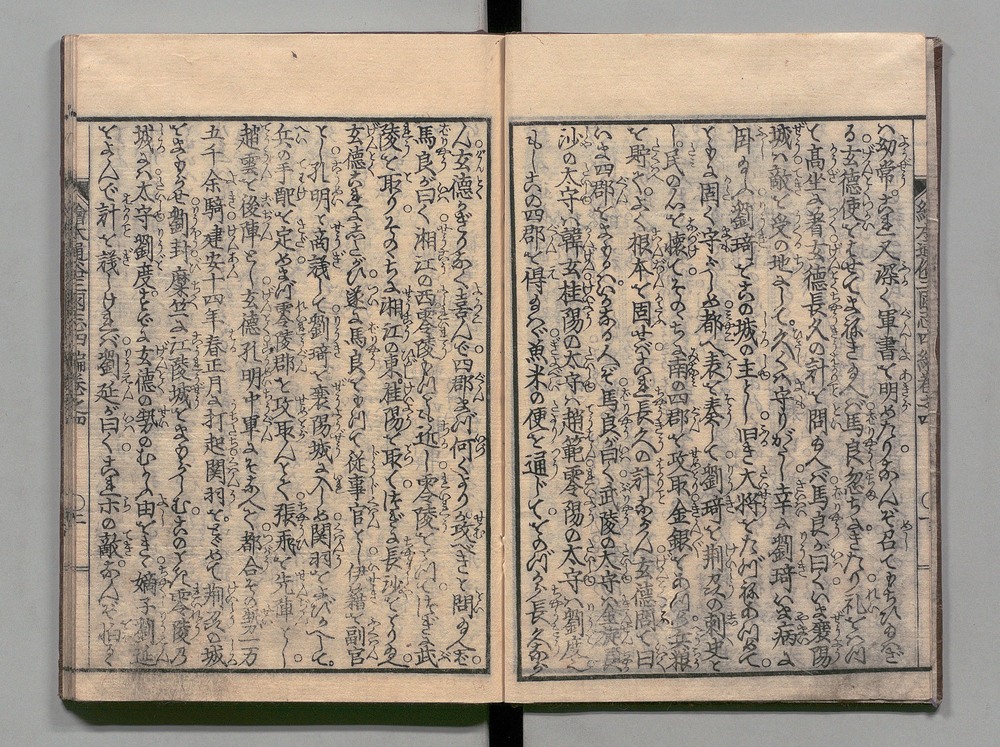 ハ幼常。これ又深く軍書を明めたり。なんぞ召てもちひ給ハざ
る玄德使をはせてまねき給へバ馬良忽ちきたり礼をハつ
て高坐に着玄德長久の計を問給へバ馬良が曰くいま襄陽
城ハ敵を受の地にして。久く守りがたし幸に劉琦いま病に
臥給へバ劉琦をこの城の主とし旧き大將をあつめて
ともに固く守らしめ都へ表を奏して劉琦を荆州の刺史と
し。民の心を懐てそのゝち南の四郡を攻取金銀をあつめ兵粮
を貯てふかく根本を固せバこれ長久の計ならん玄德問て曰
いま四郡をまもるハいかなる人ぞ馬良が曰く武陵の太守ハ金旋長
沙の太守ハ韓玄桂陽の太守ハ趙範零陽の太守ハ劉度
もしこの四郡を得給ハゞ魚米の便を通じてそのゝちハ長久なら
ん玄德かぎりなく喜んで四郡ハ何くより攻べきと問給へバ
馬良が曰く湘江の西零陵もつとも近し零陵をとつてつぎに武
陵を取りそのゝちに湘江の東桂陽を取てつぎに長沙をとり給へ
玄德これにしたがひ遂に馬良をもつて従事官とし伊籍を副官
とし孔明と商議して劉琦を襄陽城に入しめ関羽をよびかへして。
兵の手配を定めまづ零陵郡を攻取んとて張飛を先陣とし
趙雲を後陣とし玄德孔明中軍にそなへて都合その勢一万
五千余騎建安十四年春正月に打起関羽をとゞめて荆州の城
をまもらせ劉封麋竺に江陵城をまもらしむこのとき零陵の
城にハ太守劉度すでに玄德の勢のむかふ由をきゝ嫡子劉延
をよんで計を議しけれバ劉延が曰くこれ示の敵なんぞ怕るゝ
繪本通俗三國志四編卷之四